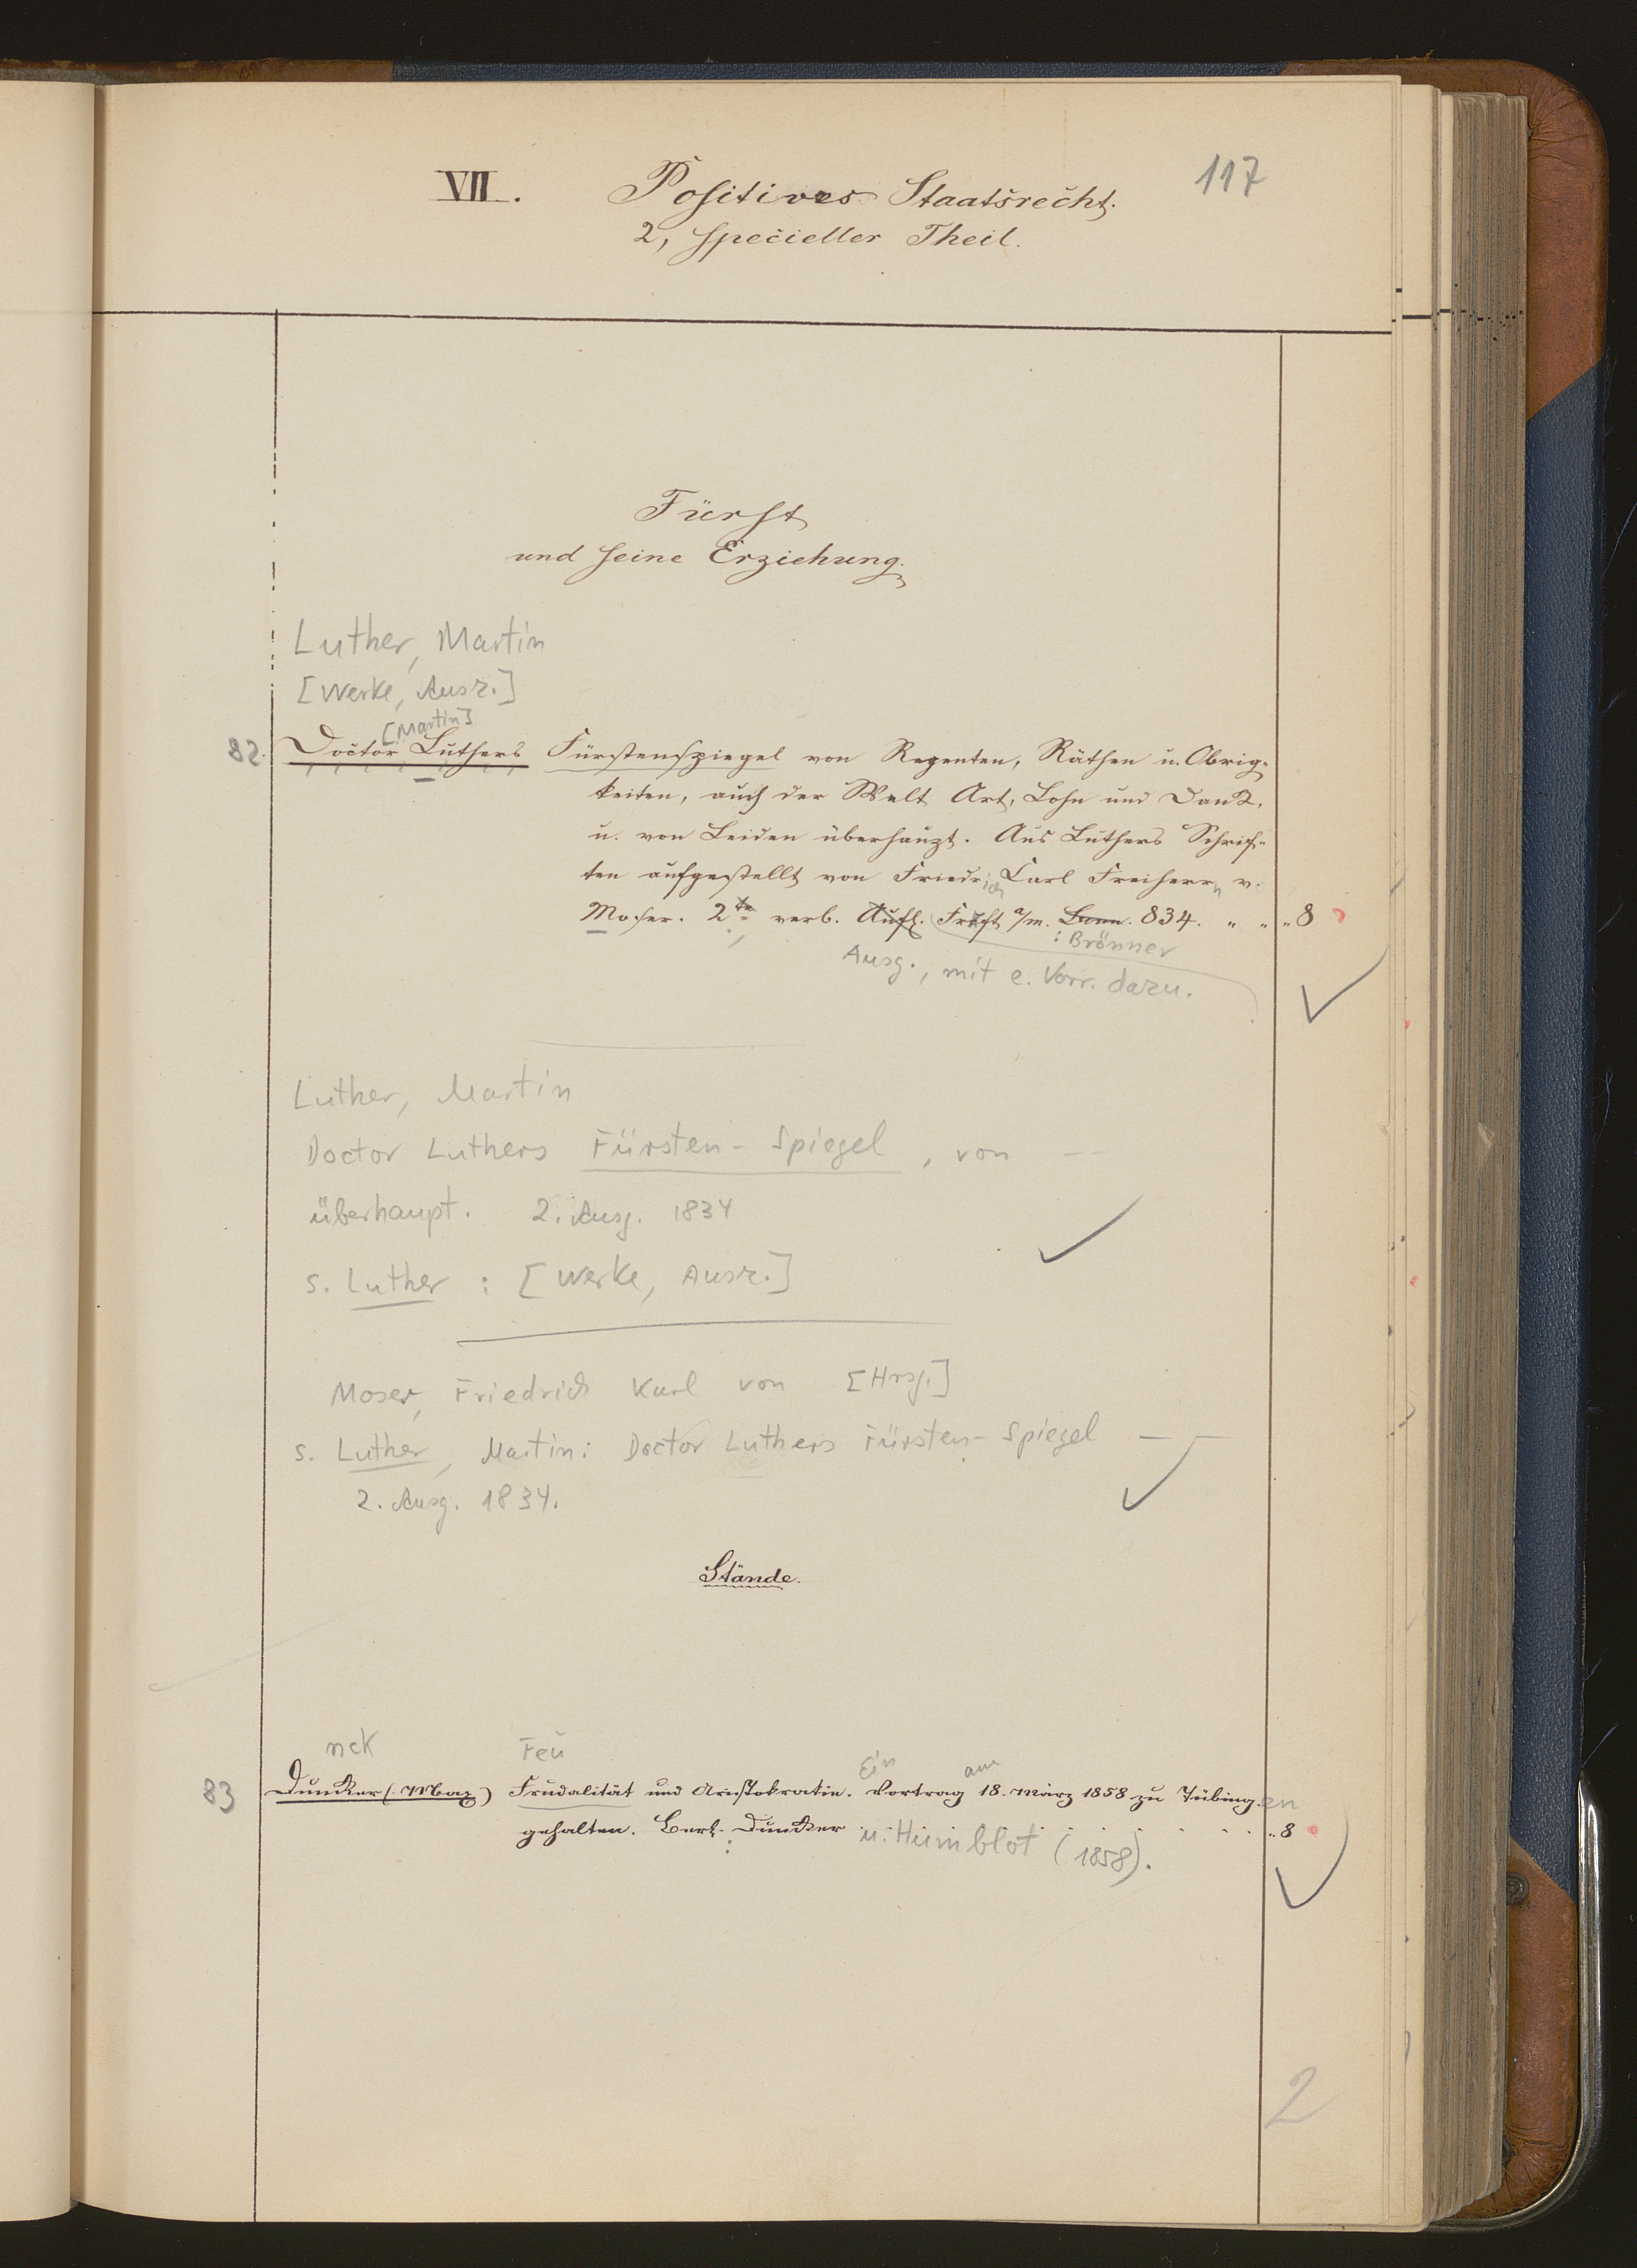 117
VII. Positives Staatsrecht.
2, specieller Theil.
Fürst
und seine Erziehung.
Luther, Martin
[Werke, Ausz.]
[Martin]
82. Doctor Luthers Fürstenspiegel von Regenten, Räthen u. Obrig-
keiten, auch der Welt Art, Lohn und Dank,
u. von Leiden überhaupt. Aus Luthers Schrif-
ten aufgestellt von Friedrich Carl Freiherrn v.
Moser. 2te verb. Aufl. Frkft a/m. 834. " " " 8
: Brönner
Ausg., mit e. Vorr. dazu.
Luther, Martin
Doctor Luthers Fürsten-Spiegel, von — 
überhaupt. 2. Ausg. 1834
s. Luther : [Werke, Ausz.]
Moser, Friedrich Karl von [Hrsg.]
s. Luther, Martin: Doctor Luthers Fürsten-Spiegel — —
2. Ausg. 1834.
Stände.
nck Feu Ein am
83 Duncker (Max) Feudalität und Aristokratie. Vortrag 18. März 1858 zu Tübingen
gehalten. Berl. : Duncker u. Humblot (1858). " 8
2